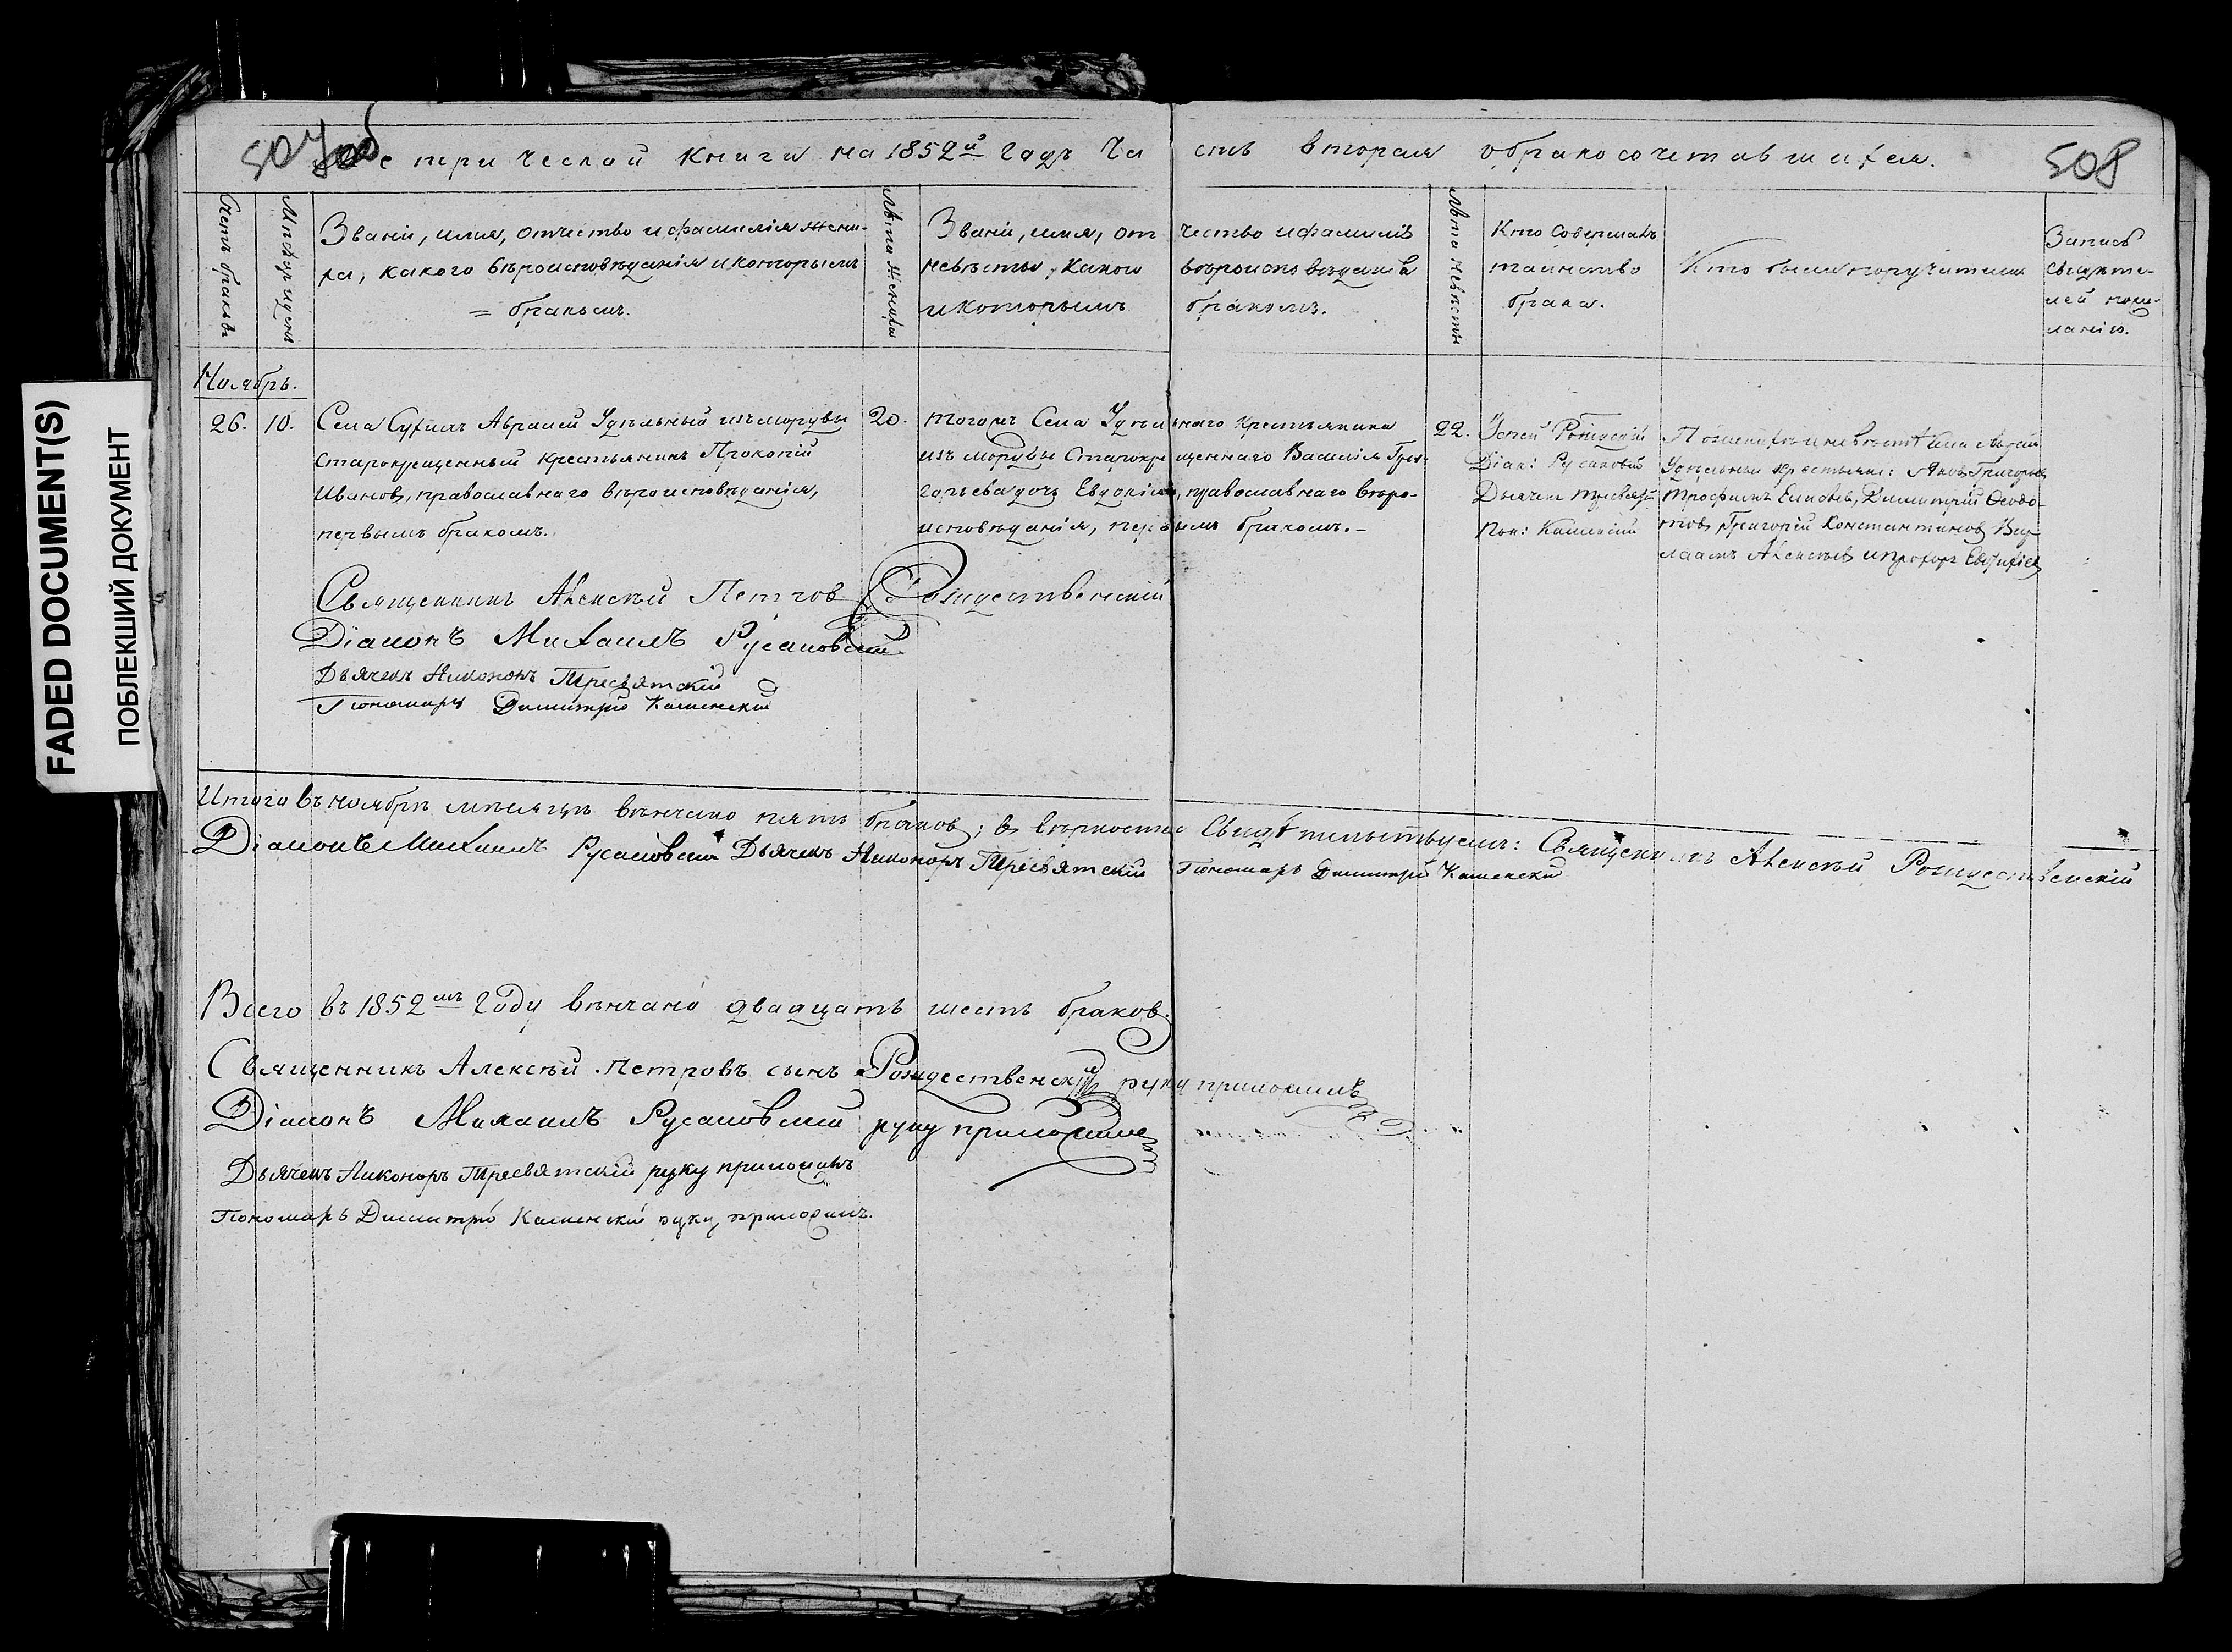 FADED DOCUMENT(S)
ПОБЛЕКШИЙ ДОКУМЕНТ
507об
трической книги на 1852й Годъ Часть вторая обракосочетавшихся.
508
Счетъ браковъ
Мѣсяцъ и день
Званіе, имя, отчество и фамилія жени-
ха, какого вѣроисповѣданія и которымъ
= бракомъ.
Лѣта жениха
Званіе, имя, отчество и фамилія
невѣсты, какого вѣроисповѣданія
и которымъ бракомъ.
Лѣта невѣсты
Кто совершалъ
таинство
брака.
Кто были поручители
Запись
свидѣте-
лей по же-
ланію.
Ноябрь.
26. 10.
Села Сухихъ Авралей Удѣльный изъ мордвы
старокрещенный крестьянинъ Прокопій
Ивановъ, православнаго вѣроисповѣданія,
первымъ бракомъ.
20.
Тогожъ Села Удѣльнаго крестьянина
изъ мордвы Старокрещеннаго Василія Григ-
горьева дочь Евдокія, православнаго вѣро-
исповѣданія, первымъ бракомъ.-
22.
Іерей Рождескій
Діак: Русановскій
Дьячекъ Тресвят-
Пон: Каменскій
По женихѣ и невѣстѣ были
Удѣльныи крестьяне: Яковъ Григорьевъ
Трофимъ Димитрій Ѳеодо-
товъ, Григорій Константиновъ Вар-
лаамъ Алексѣевъ и Прохоръ
Священникъ Алексѣй Петровъ Рождественскій
Діаконъ Михаилъ Русановскій
Дьячекъ Никоноръ Тресвятскій
Пономарь Димитрій Каменскій
Итого въ ноябрѣ мѣсяцѣ вѣнчано пять браковъ; въ вѣрности Свидѣтельствуемъ: Священникъ Алексѣй Рождественскій
Діаконъ Михаилъ Русановскій Дьячекъ Никоноръ Тресвятскій Пономарь Димитрій Каменскій
Всего въ 1852мъ Году вѣнчано двадцать шесть браковъ.
Священникъ Алексѣй Петровъ сынъ Рождественскій руку приложилъ
Діаконъ Михаилъ Русановскій руку приложилъ
Дьячекъ Никоноръ Тресвятскій руку приложилъ
Пономарь Димитрій Каменскій руку приложилъ.